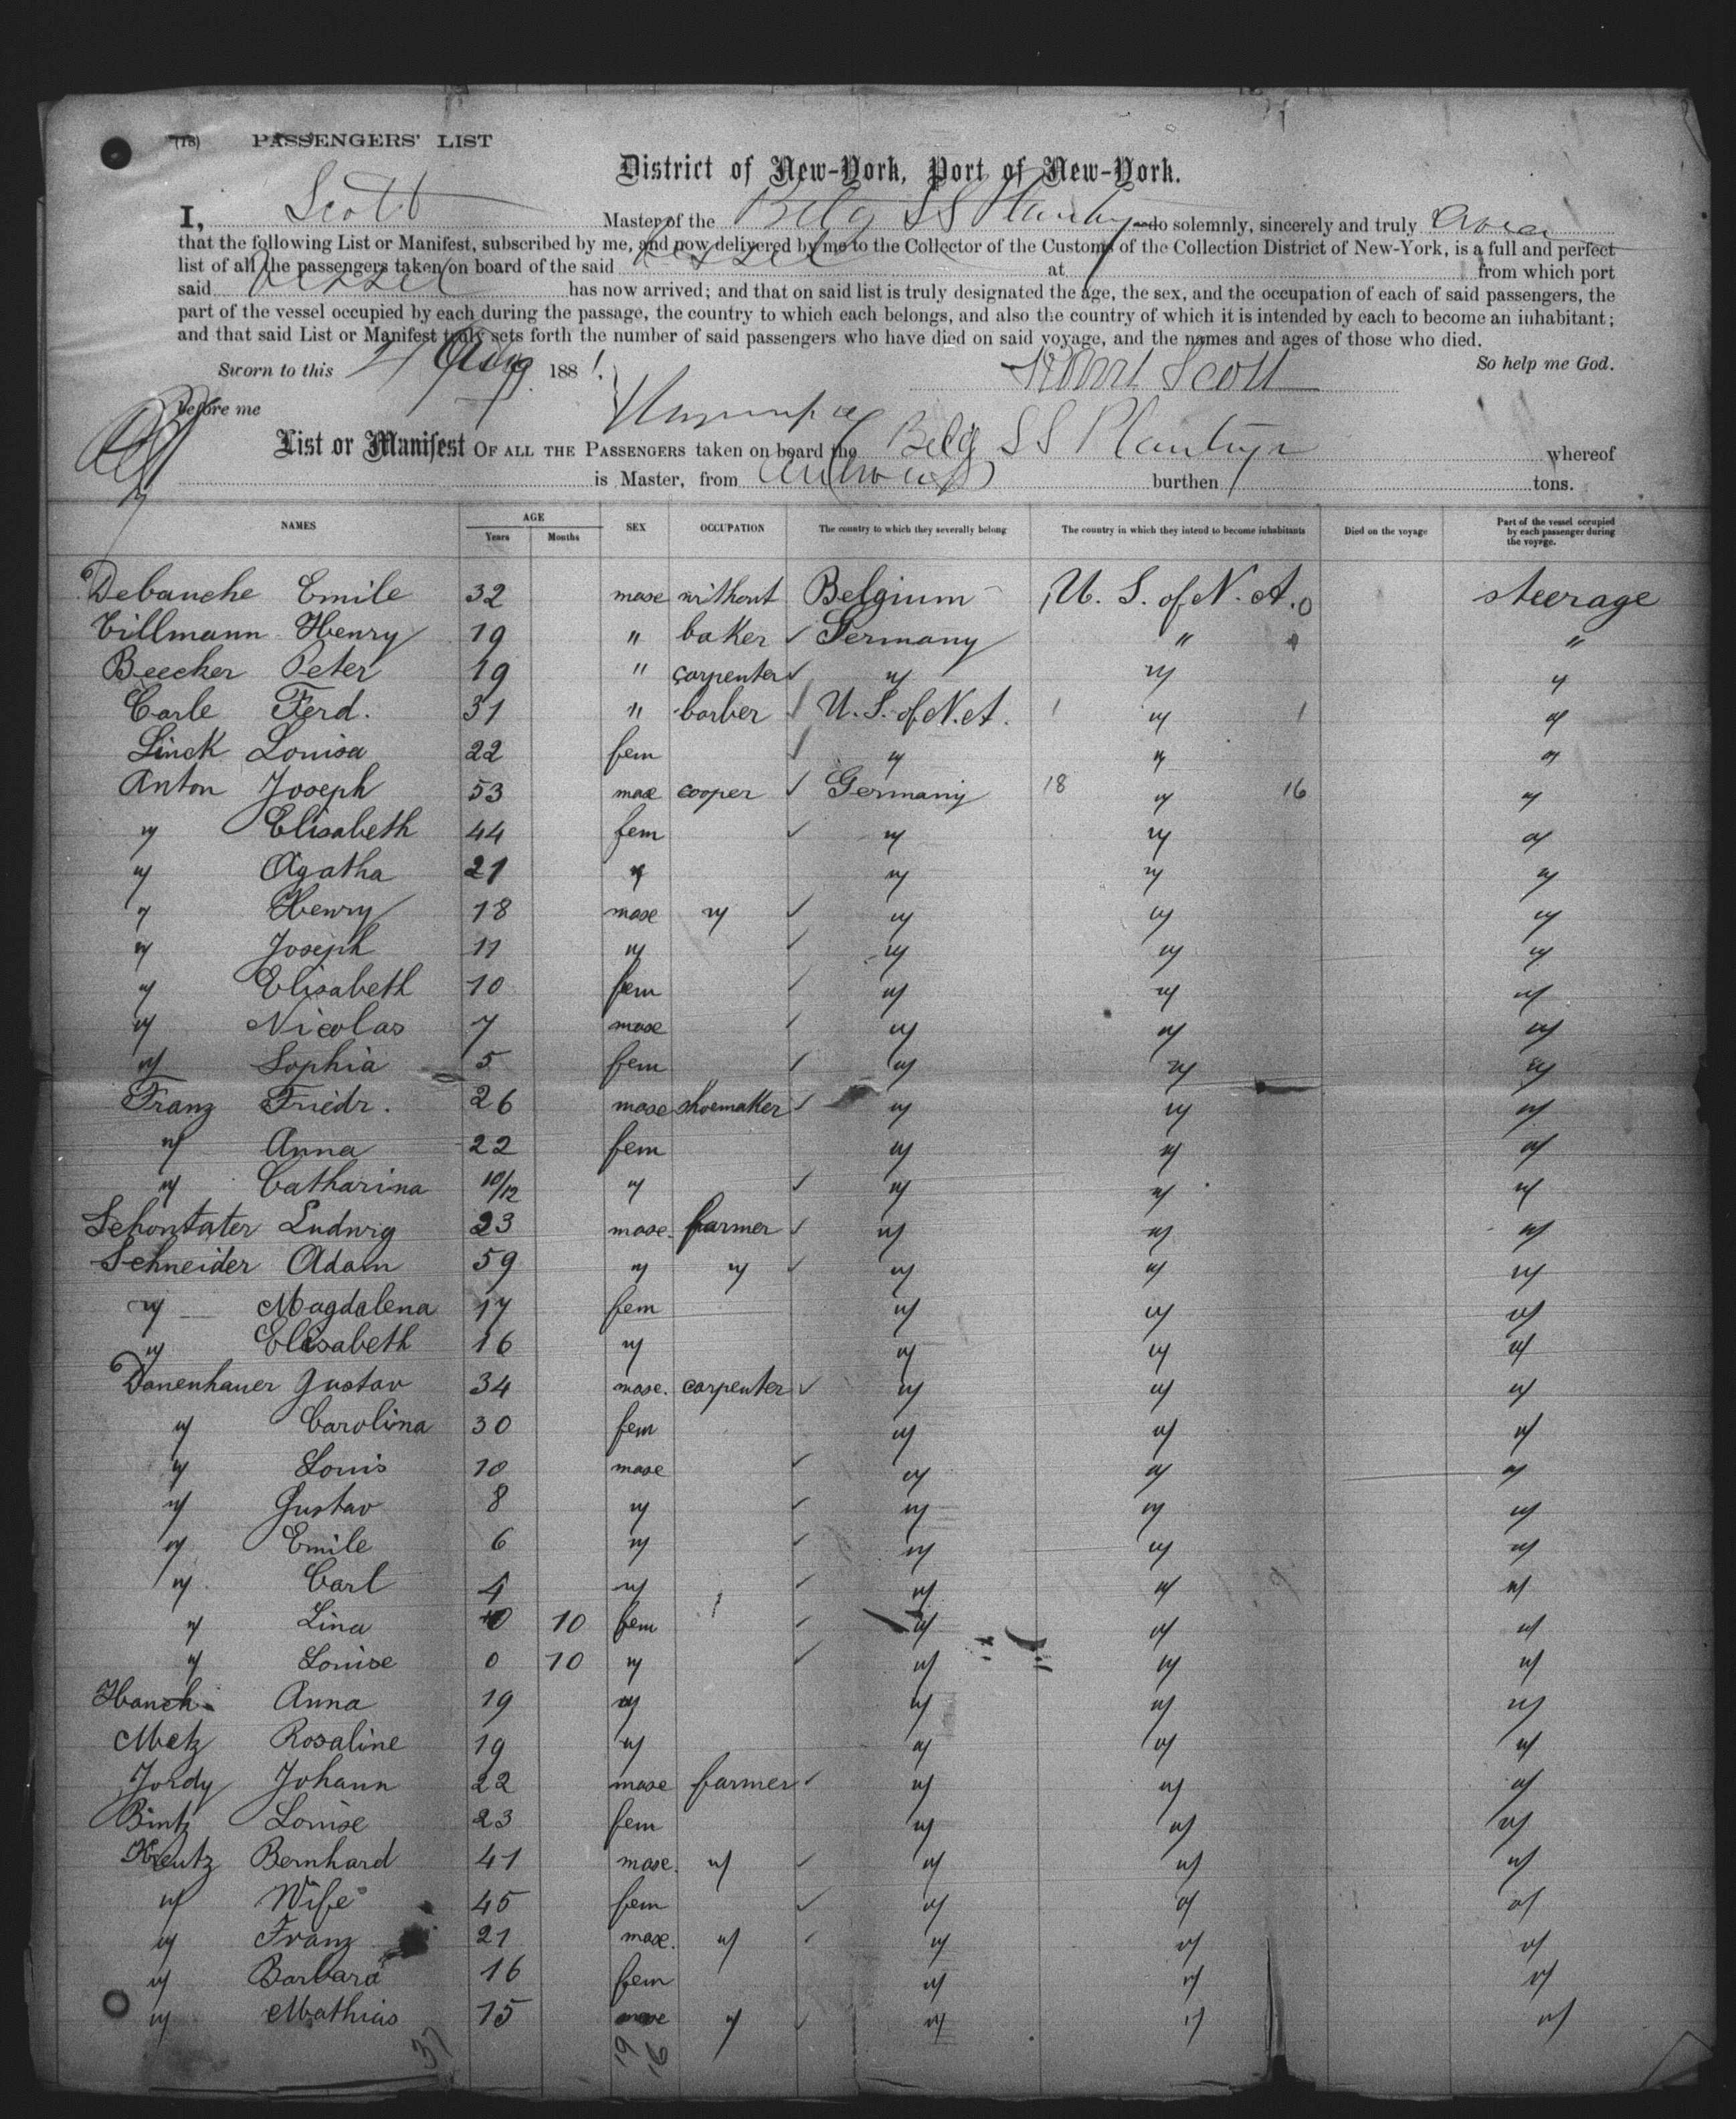 (18) PASSENGERS' LIST
District of New-York, Port of New-York.
I, Scott Master of the Belg SS Plantyn do solemnly, sincerely and truly
that the following List or Manifest, subscribed by me, and now delivered by me to the Collector of the Customs of the Collection District of New-York, is a full and perfect
list of all the passengers taken on board of the said vessel at from which port
said vessel has now arrived; and that on said list is truly designated the age, the sex, and the occupation of each of said passengers, the
part of the vessel occupied by each during the passage, the country to which each belongs, and also the country of which it is intended by each to become an inhabitant;
and that said List or Manifest truly sets forth the number of said passengers who have died on said voyage, and the names and ages of those who died.
Sworn to this Aug 1881. Robert Scott So help me God.
before me
List or Manifest OF ALL THE PASSENGERS taken on board the Belg SS Plantyn whereof
is Master, from Antwerp burthen tons.
NAMES AGE Years Months SEX OCCUPATION The country to which they severally belong The country in which they intend to become inhabitants Died on the voyage Part of the vessel occupied by each passenger during the voyage.
Debauche Emile 32 masc without Belgium U. S. of N. A. steerage
Tillmann Henry 19 " baker ✓ Germany " "
Beecker Peter 19 " carpenter ✓ " " "
Carle Ferd. 31 " barber U. S. of N. A. 1 " 1 "
Linck Louisa 22 fem " " "
Anton Joseph 53 masc cooper ✓ Germany 18 " 16 "
" Elisabeth 44 fem ✓ " " "
" Agatha 21 " " " "
" Henry 18 masc " ✓ " " "
" Joseph 11 " ✓ " " "
" Elisabeth 10 fem ✓ " " "
" Nicolas 7 masc ✓ " " "
" Sophia 5 fem ✓ " " "
Franz Friedr. 26 masc shoemaker ✓ " " "
" Anna 22 fem " " "
" Catharina 10/12 " ✓ " " "
Schontater Ludwig 23 masc. farmer ✓ " " "
Schneider Adam 59 " " ✓ " " "
" Magdalena 17 fem " " "
" Elisabeth 16 " " " "
Danenhauer Gustav 34 masc. carpenter ✓ " " "
" Carolina 30 fem " " "
" Louis 10 masc ✓ " " "
" Gustav 8 " ✓ " " "
" Emile 6 " ✓ " " "
" Carl 4 " ✓ " " "
" Lina 0 10 fem ✓ " " "
" Louise 0 10 " ✓ " " "
Hanch Anna 19 " " " "
Metz Rosaline 19 " " " "
Jordy Johann 22 masc farmer ✓ " " "
Bintz Louise 23 fem " " "
Kreutz Bernhard 41 masc. " ✓ " " "
" Wife 45 fem ✓ " " "
" Franz 21 masc. " ✓ " " "
" Barbara 16 fem " " "
" Mathias 15 masc " ✓ " " "
37 19 16